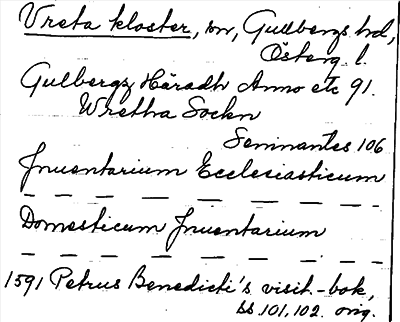 Vreta kloster, sn, Gullbergs hd,
Österg. l.
Gulbergz Häradh Anno etc 91.
Wretha Sockn
Seminantes 106
Inuentarium Ecclesiasticum
— — — — — — — — —
Domesticum Inuentarium
— — — — — — — — —
1591 Petrus Benedicti's visit.-bok,
ss 101, 102. orig.